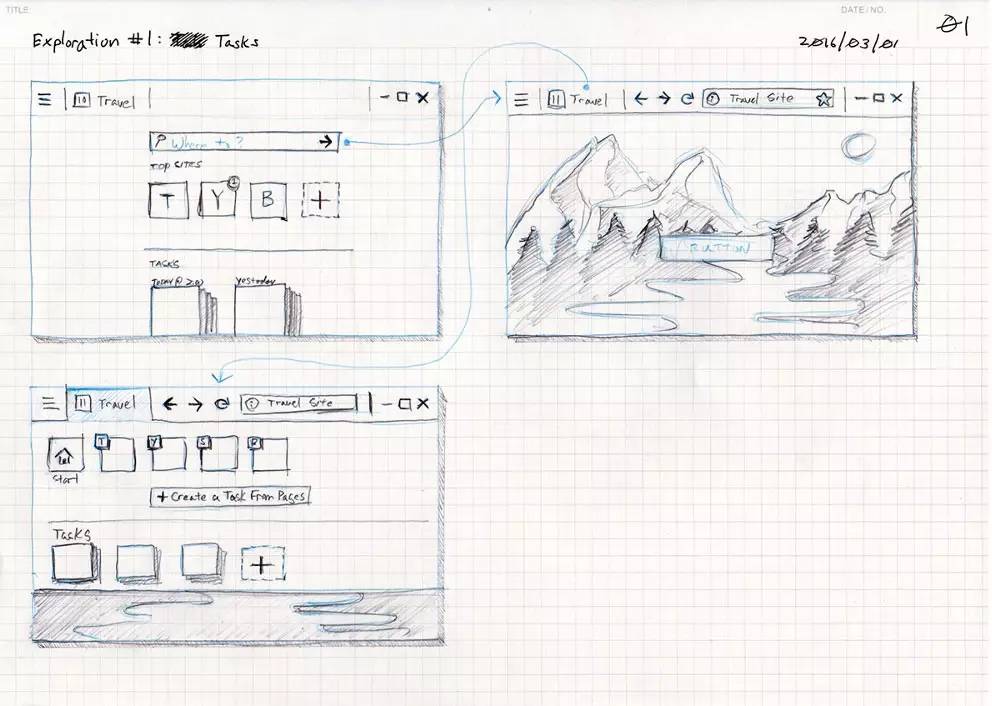 TITLE:
DATE/NO.
01
Exploration #1: Tasks
2016/03/01
10 Travel
Where to?
TOP SITES
T Y 1 B +
TASKS
TODAY @ 2:00 Yesterday
11 Travel Travel Site
BUTTON
11 Travel Travel Site
T Y S B
Start
+ Create a Task From Pages
Tasks
+